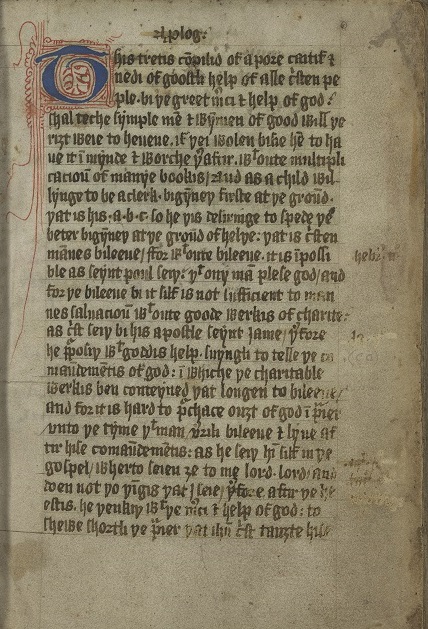 prolog:
This tretis cōpilid of a pore caitif &
nedi of goostli help of alle c̄sten pe
ple. bi þe greet m̄ci & help of god:
schal teche symple mē & wȳmen of good will þe
riȝt weie to heuene. if þei wolen bisie hē to ha
ue it ī mȳnde & worche þ̄aftir. wᵗoute multipli
cacioū of manye bookis/ and as a child wil
lynge to be a clerk. bigȳneþ firste at þe groūd.
þat is his .a.b.c. so he þis desiringe to spede þe
beter bigȳneþ at þe groūd of helþe: þat is c̄sten
mānes bileeue/ ffor wᵗoute bileeue. it is īpossi
ble as seȳnt poul seiþ: þᵗ ony mā plese god/ and
for þe bileeue bi it silf is not sufficient to man
nes saluacioū wᵗoute goode werkis of charite:
as c̄st seiþ bi his apostle seȳnt Jame/ þ̄fore
he p̄posiþ wᵗ goddis help. suyngli to telle þe co
maūdemētis of god: ī whiche þe charitable
werkis ben conteyned þat longen to bileeue/
and for it is hard to p̄chace ouȝt of god ī p̄ier
vnto þe tȳme þᵗ man v̄rili bileeue & lyue af
tir hise comaūdemētis: as he seiþ hī silf in þe
gospel/ wherto seien ȝe to me lord. lord/ and
doen not þo þīgis þat I seie/ þ̄fore aftir þe he
estis. he þenkiþ wᵗ þe m̄ci & help of god: to
schewe schortli þe p̄ier þat ih̄u c̄st tauȝte hise